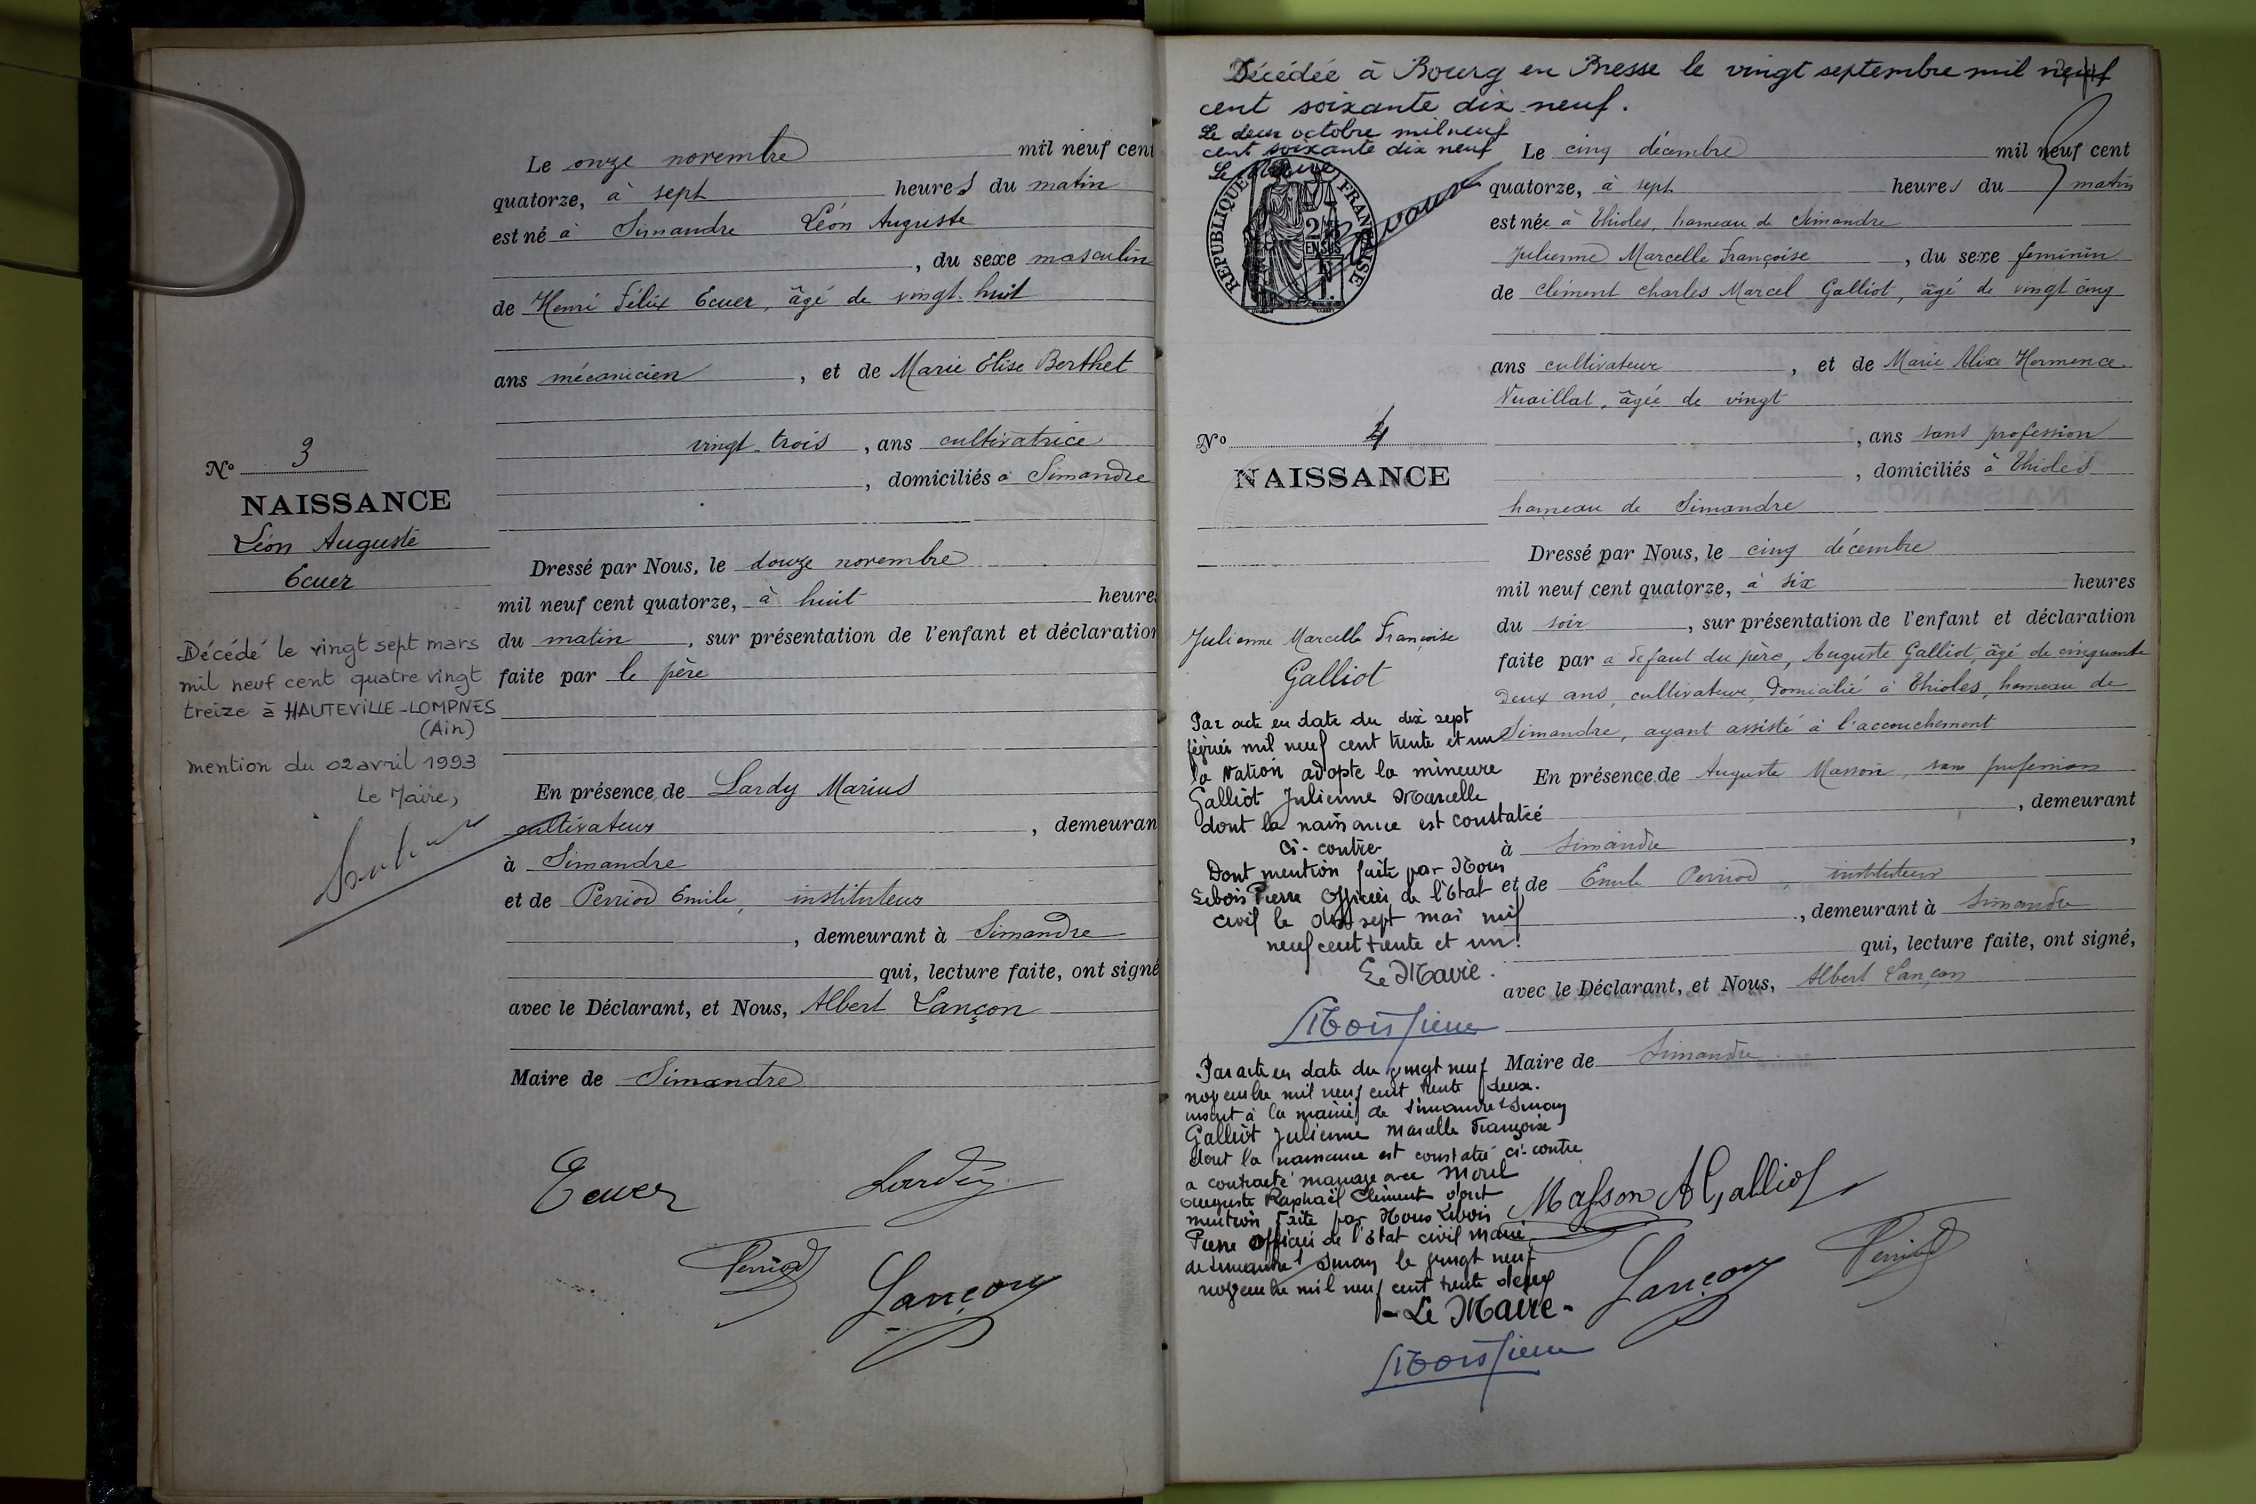 Le onze novembre mil neuf cent
quatorze, à sept heures du matin
est né à Simandre Léon Auguste
, du sexe masculin
de Henri Félix Ecuer, âgé de vingt-huit
ans mécanicien, et de Marie Elise Berthet
vingt-trois, ans cultivatrice
, domiciliés à Simandre
N° 3
NAISSANCE
Léon Auguste
Ecuer
Dressé par Nous, le douze novembre
mil neuf cent quatorze, à huit heures
du matin, sur présentation de l'enfant et déclaration
faite par le père
Décédé le vingt sept mars
mil neuf cent quatre vingt
treize à HAUTEVILLE-LOMPNES
(Ain)
mention du 02 avril 1993
Le Maire,
En présence de Lardy Marius
cultivateur, demeurant
à Simandre
et de Perriod Emile, instituteur
, demeurant à Simandre
qui, lecture faite, ont signé
avec le Déclarant, et Nous, Albert Lançon
Maire de Simandre
Ecuer
Lardy
Perriod
Lançon
Décédée à Bourg en Bresse le vingt septembre mil neuf
cent soixante dix neuf.
Le deux octobre mil neuf
cent soixante dix neuf
Le Maire
REPUBLIQUE FRANÇAISE
Le cinq décembre mil neuf cent
quatorze, à sept heures du matin
est née à Thioles, hameau de Simandre
Julienne Marcelle Françoise, du sexe féminin
de Clément Charles Marcel Galliot, âgé de vingt cinq
ans cultivateur, et de Marie Alix Hermence
Vuaillat, âgée de vingt
, ans sans profession
, domiciliés à Thioles
hameau de Simandre
N° 4
NAISSANCE
Julienne Marcelle Françoise
Galliot
Dressé par Nous, le cinq décembre
mil neuf cent quatorze, à six heures
du soir, sur présentation de l'enfant et déclaration
faite par à défaut du père, Auguste Galliot, âgé de cinquante
deux ans, cultivateur, domicilié à Thioles, hameau de
Simandre, ayant assisté à l'accouchement
En présence de Auguste Masson, sans profession
, demeurant
à Simandre,
et de Emile Perriod, instituteur
, demeurant à Simandre
qui, lecture faite, ont signé,
avec le Déclarant, et Nous, Albert Lançon
Maire de Simandre
Par acte en date du dix sept
février mil neuf cent trente et un
la Nation adopte la mineure
Galliot Julienne Marcelle
dont la naissance est constatée
ci-contre
Dont mention faite par Nous
Lebois Pierre Officier de l'Etat
civil le dix sept mai mil
neuf cent trente et un.
Le Maire.
Par acte en date du vingt neuf
novembre mil neuf cent trente deux.
inscrit à la mairie de Simandre s/ Suran
Galliot Julienne Marcelle Françoise
dont la naissance est constatée ci-contre
a contracté mariage avec Morel
Auguste Raphaël Clément dont
mention faite par Nous Lebois
Pierre Officier de l'Etat civil Maire
de Simandre s/ Suran le vingt neuf
novembre mil neuf cent trente deux
- Le Maire -
Masson AGalliot
Lançon
Perriod